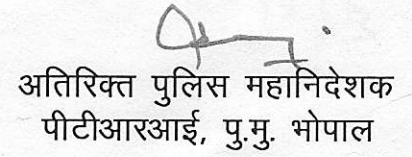 अतिरिक्त पुलिस महानिदेशक
पीटीआरआई, पु.मु. भोपाल